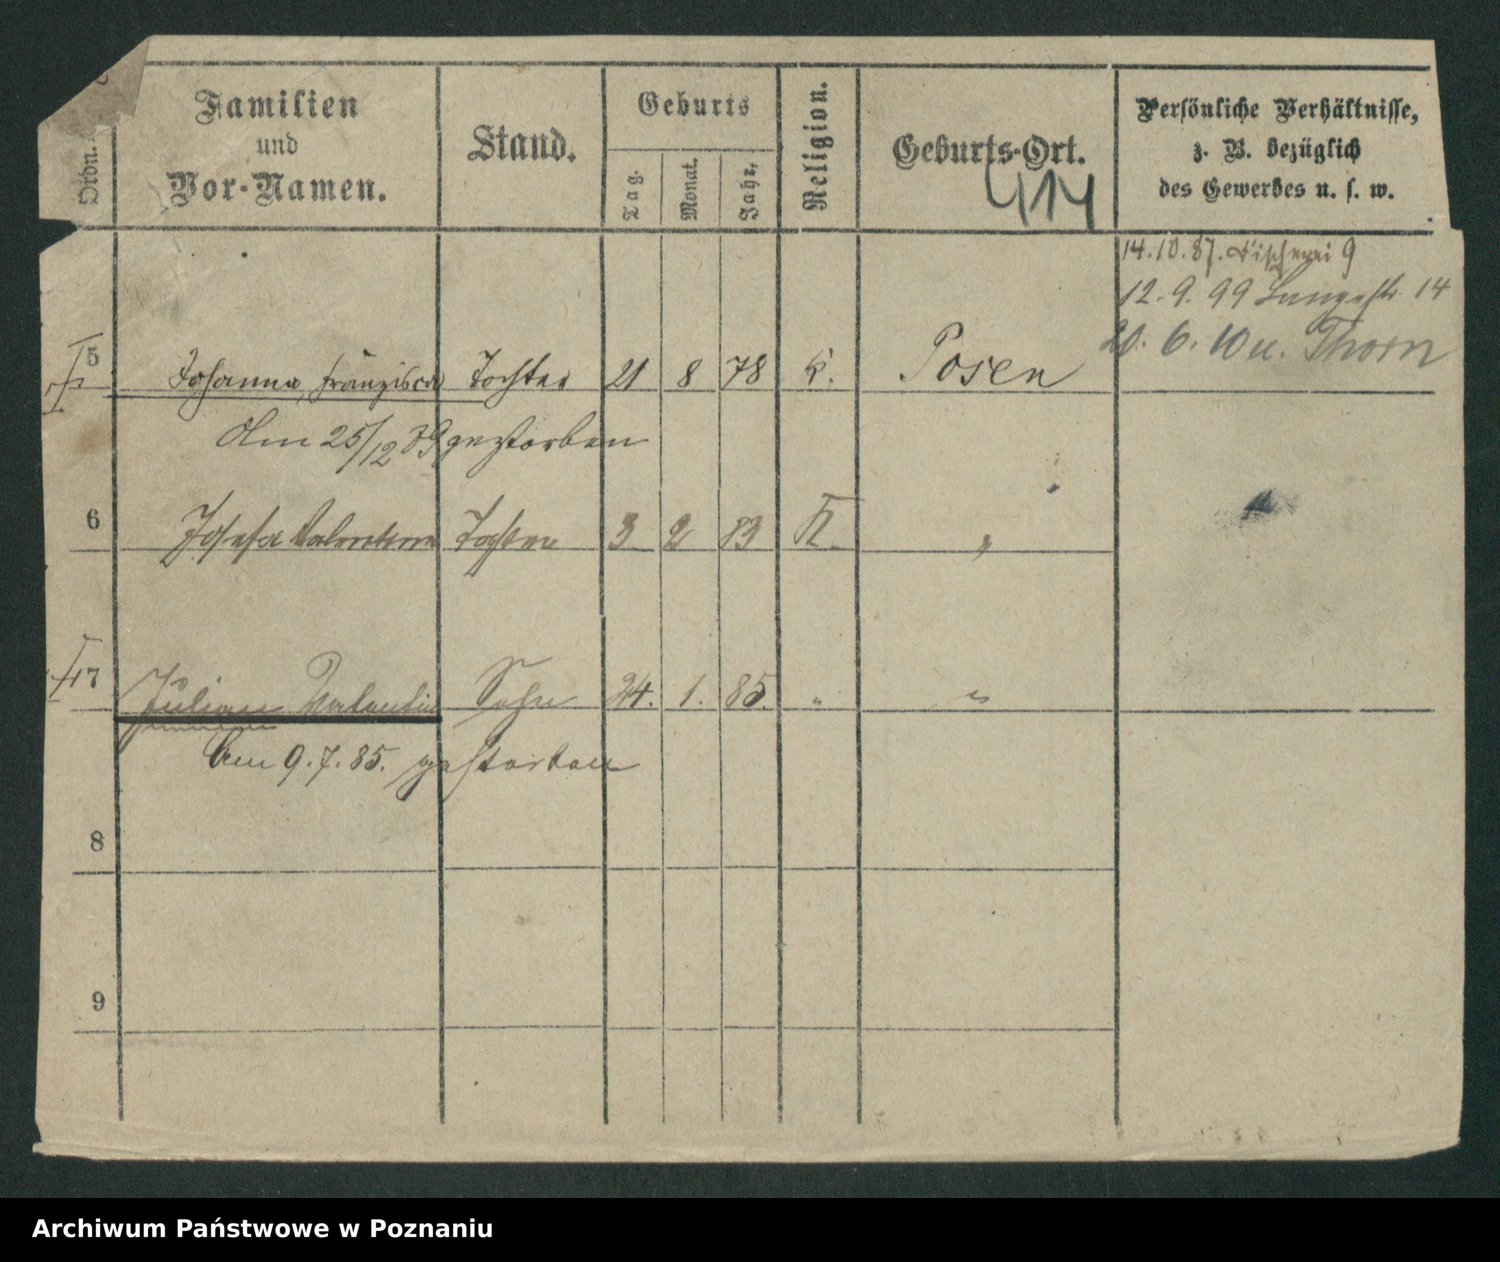 Ordn.
Familien
und
Vor-Namen.
Stand.
Geburts
Tag.
Monat.
Jahr.
Religion.
Geburts-Ort.
414
Persönliche Verhältnisse,
z. B. bezüglich
des Gewerbes u. s. w.
14.10.87. Fischerei 9
12.9.99 Langestr. 14
6.10 u. Thorn
5 Johanna, Franzisca Tochter 21 8 78 k. Posen
Am 25/12 89 gestorben
6 Josefa Valentina Tochter 3 2 83 K. "
7 Julian Valentin Sohn 24. 1. 85. " "
Am 9.7.85. gestorben
8
9
Archiwum Państwowe w Poznaniu